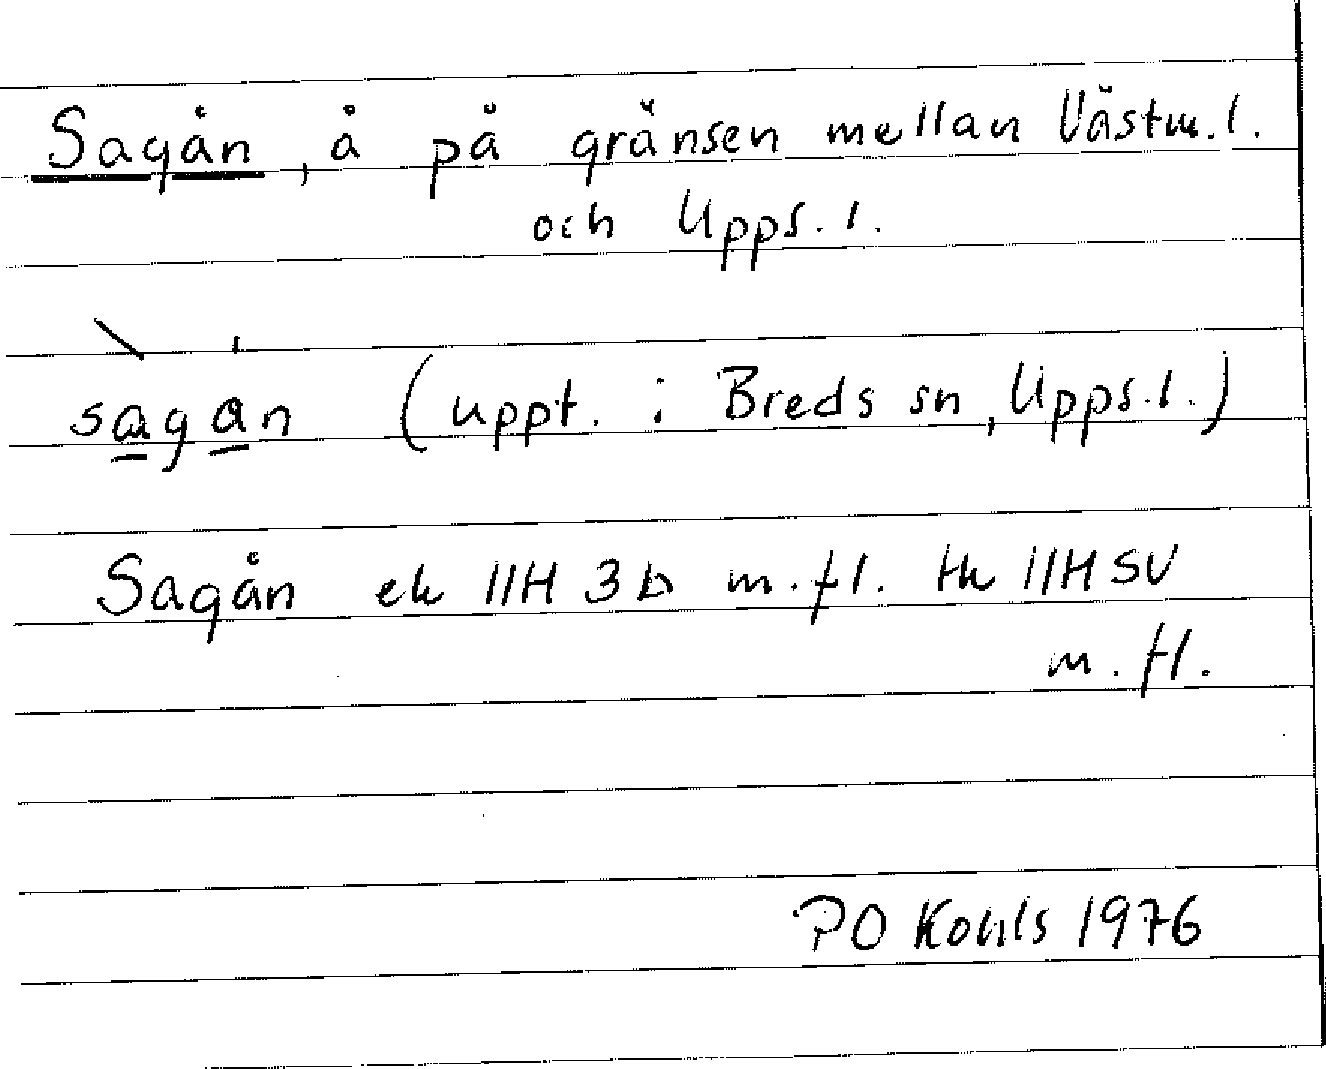 Sagån, å på gränsen mellan Västm.l.
och Upps.l.
sàgán (uppt. i Breds sn, Upps.l.)
Sagån ek 11H 3b m.fl. tk 11H SV
m.fl.
PO Kohls 1976